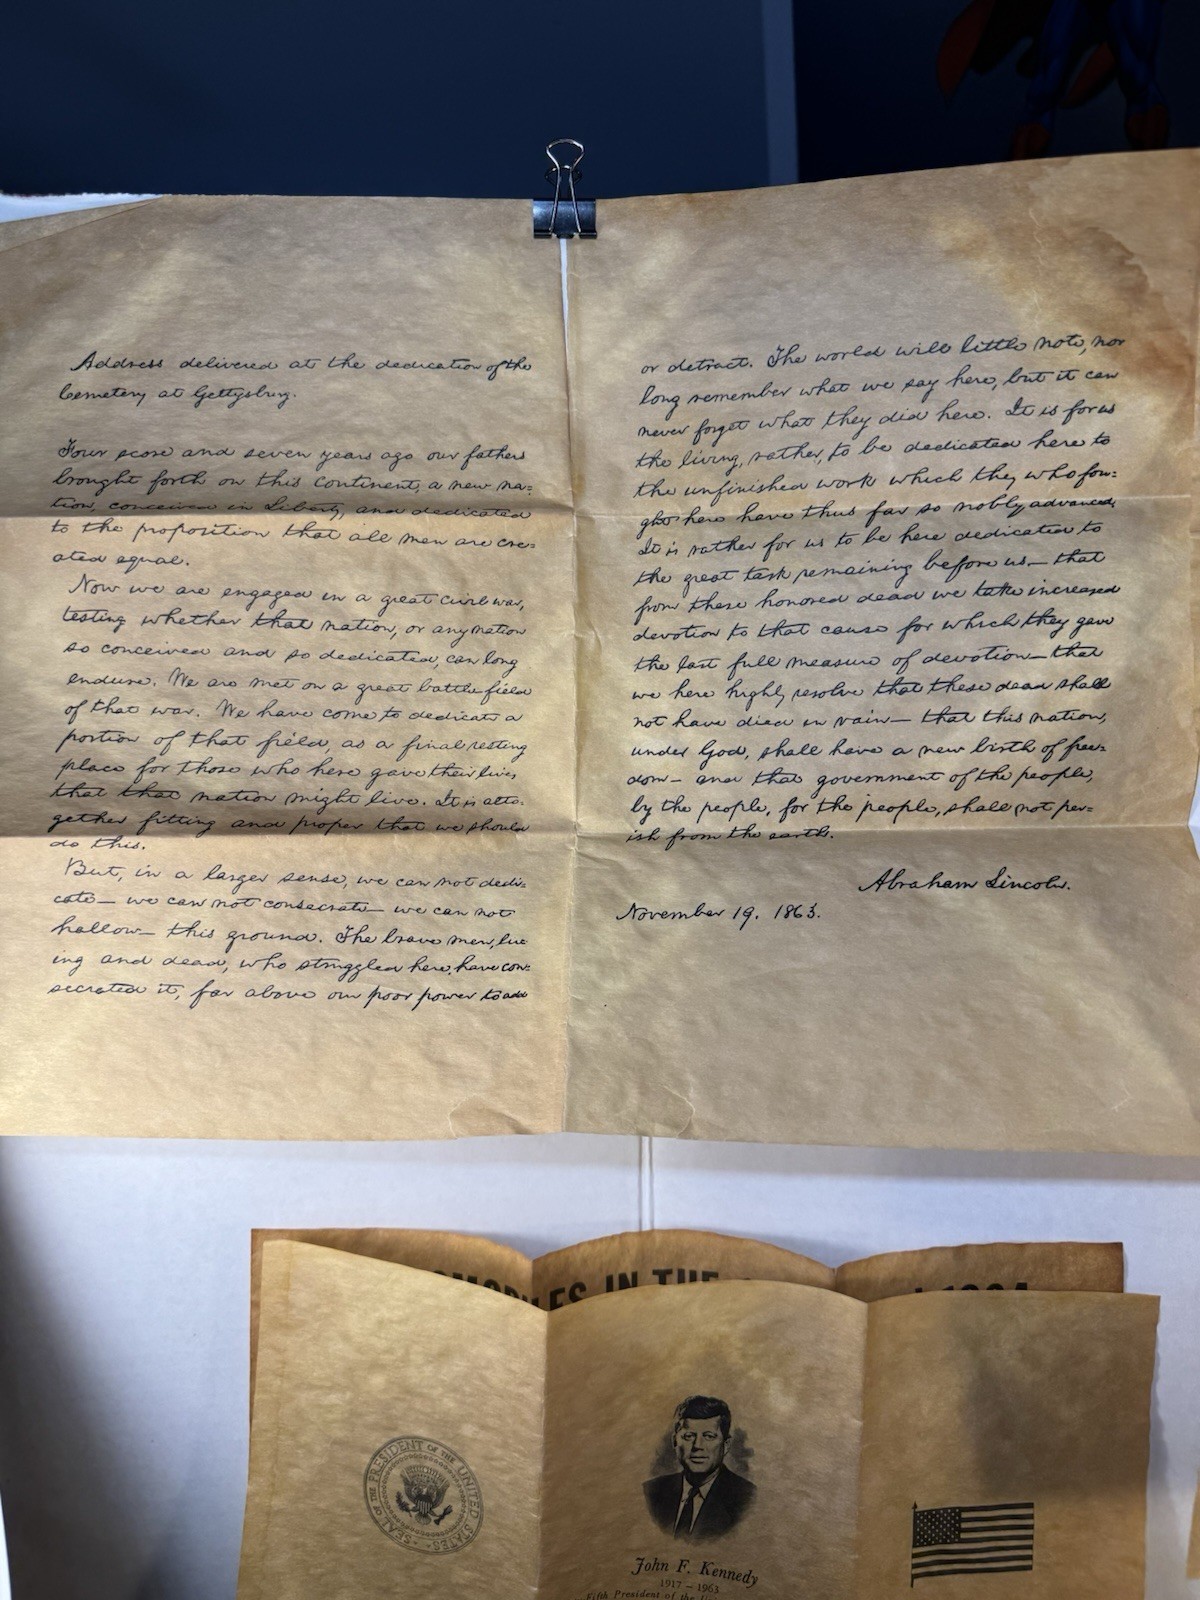 Address delivered at the dedication of the
Cemetery at Gettysburg.
Four score and seven years ago our fathers
brought forth on this continent, a new na=
tion, conceived in Liberty, and dedicated
to the proposition that all men are cre=
ated equal.
Now we are engaged in a great civil war,
testing whether that nation, or any nation
so conceived and so dedicated, can long
endure. We are met on a great battle-field
of that war. We have come to dedicate a
portion of that field, as a final resting
place for those who here gave their lives
that that nation might live. It is alto=
gether fitting and proper that we should
do this.
But, in a larger sense, we can not dedi=
cate— we can not consecrate— we can not
hallow— this ground. The brave men, liv
ing and dead, who struggled here, have con=
secrated it, far above our poor power to add
or detract. The world will little note, nor
long remember what we say here, but it can
never forget what they did here. It is for us
the living, rather, to be dedicated here to
the unfinished work which they who fou=
ght here have thus far so nobly advanced.
It is rather for us to be here dedicated to
the great task remaining before us— that
from these honored dead we take increased
devotion to that cause for which they gave
the last full measure of devotion— that
we here highly resolve that these dead shall
not have died in vain— that this nation,
under God, shall have a new birth of free=
dom— and that government of the people,
by the people, for the people, shall not per=
ish from the earth.
Abraham Lincoln.
November 19. 1863.
IN THE
SEAL OF THE PRESIDENT OF THE UNITED STATES
John F. Kennedy
1917 – 1963
Fifth President of the